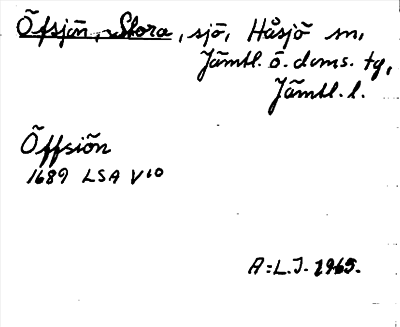 Öfsjön, Stora, sjö, Håsjö sn,
Jämtl. ö. doms. tg,
Jämtl. l.
Öffsiön
1689 LSA V10
A: L.J. 1965.